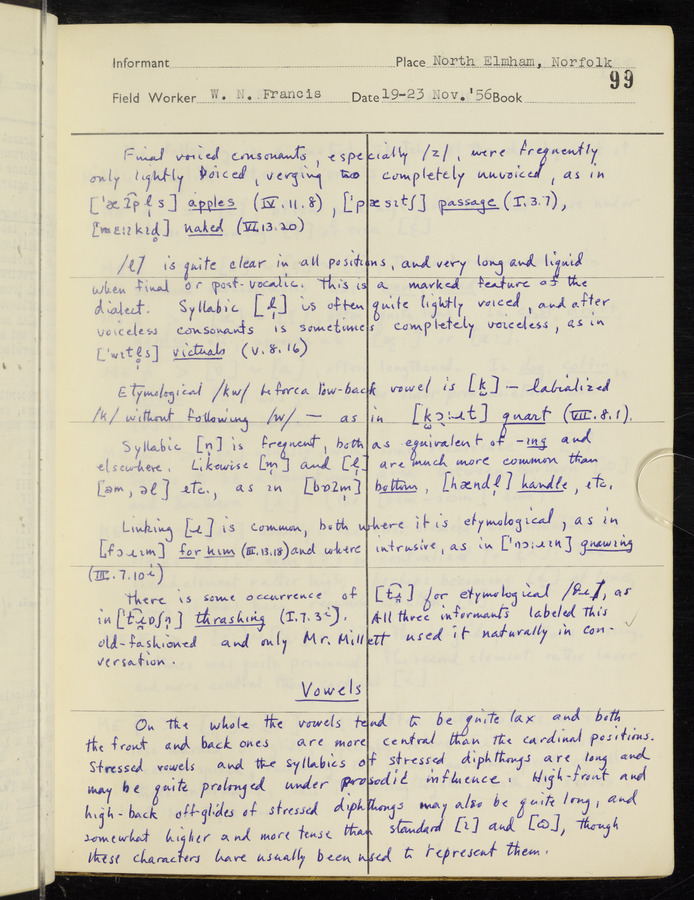 Informant Place North Elmham, Norfolk
99
Field Worker W. N. Francis Date 19-23 Nov. '56 Book
Final voiced consonants, especially /z/, were frequently
only lightly voiced, verging to completely unvoiced, as in
apples (IV.11.8), passage (I.3.7),
naked (VI.13.20)
/ɫ/ is quite clear in all positions, and very long and liquid
when final or post-vocalic. This is a marked feature of the
dialect. Syllabic [l̩] is often quite lightly voiced, and after
voiceless consonants is sometimes completely voiceless, as in
victuals (V.8.16)
Etymological /kw/ before a low-back vowel is [k̫] — labialized
/k/ without following /w/ — as in quart (VII.8.1).
Syllabic [n̩] is frequent, both as equivalent of -ing and
elsewhere. Likewise [m̩] and [l̩] are much more common than
[əm, əl] etc., as in bottom, [hændl̩] handle, etc.
Linking [ɹ] is common, both where it is etymological, as in
[fɔɹɪm] for him (IX.13.18) and where intrusive, as in gnawing
(III.7.10i)
There is some occurrence of for etymological /θɹ/, as
in thrashing (I.7.3i). All three informants labeled this
old-fashioned and only Mr. Millett used it naturally in con-
versation.
Vowels
On the whole the vowels tend to be quite lax and both
the front and back ones are more central than the cardinal positions.
Stressed vowels and the syllabics of stressed diphthongs are long and
may be quite prolonged under prosodic influence. High-front and
high-back off-glides of stressed diphthongs may also be quite long, and
somewhat higher and more tense than standard [ɪ] and [ɷ], though
these characters have usually been used to represent them.